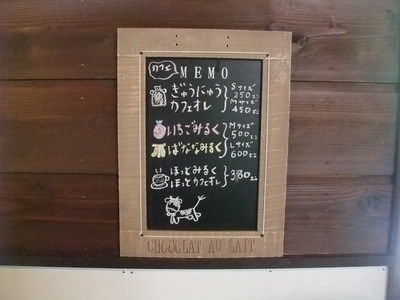 カフェ
MEMO
ぎゅうにゅう
カフェオレ
Sサイズ
250エン
Mサイズ
450エン
いちごみるく
ばななみるく
Mサイズ
500エン
Lサイズ
600エン
ほっとみるく
ほっとカフェオレ
380エン
CHOCOLAT AU LAIT